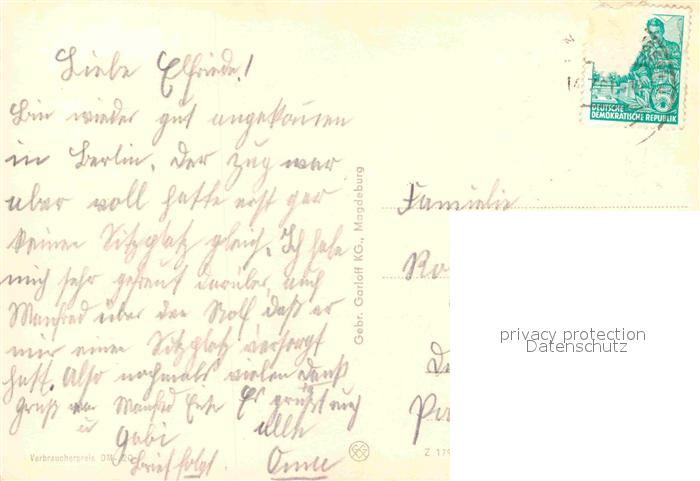 Liebe Elfriede!
Bin wieder gut angekommen
in Berlin. Der Zug war
aber voll hatte erst gar
keinen Sitzplatz gleich. Ich habe
mich sehr gefreut darüber, auch
Manfred über den Rolf daß er
mir einen Sitzplatz versorgt
hatt. Also nochmals vielen Dank
Gruß von Manfred Eure Es grüßt euch
u Gabi alle
Brief folgt. Omi
Verbraucherpreis DM -,20
Gebr. Garloff KG., Magdeburg
DEUTSCHE
DEMOKRATISCHE REPUBLIK
Familie
Ro
privacy protection
Datenschutz
Z 179